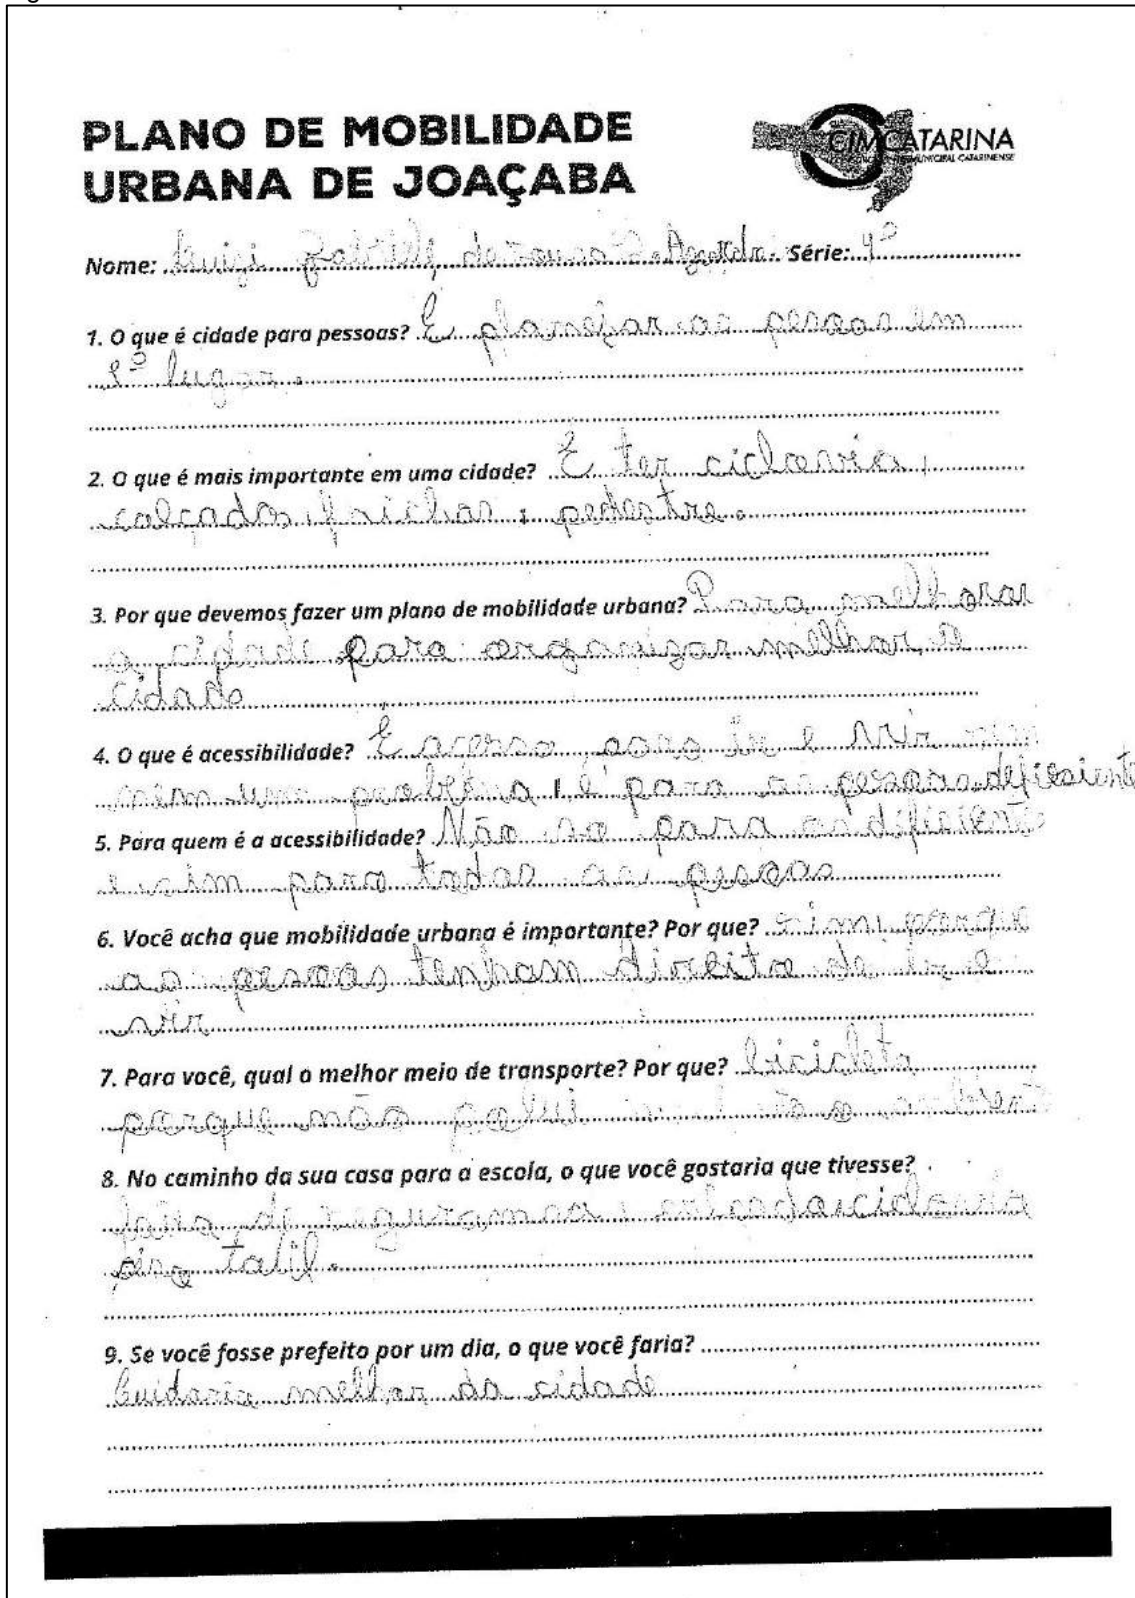 PLANO DE MOBILIDADE
URBANA DE JOAÇABA
CIMCATARINA
Nome: Luigi Série: 4º
1. O que é cidade para pessoas? É planejar as pessoas em
1º lugar.
2. O que é mais importante em uma cidade? É ter ciclovia,
calçados, pedestre.
3. Por que devemos fazer um plano de mobilidade urbana? Para melhorar
a cidade para organizar melhor a
cidade
4. O que é acessibilidade? É acesso para ir e vir
nem um problema, é para as pessoas
5. Para quem é a acessibilidade? Não so para os deficiente
e sim para todas as pessoas
6. Você acha que mobilidade urbana é importante? Por que? sim, porque
as pessoas tenham direito de ir e
vir
7. Para você, qual o melhor meio de transporte? Por que? bicicleta
porque não polui
8. No caminho da sua casa para a escola, o que você gostaria que tivesse?
de
piso tatil.
9. Se você fosse prefeito por um dia, o que você faria?
Cuidaria melhor da cidade